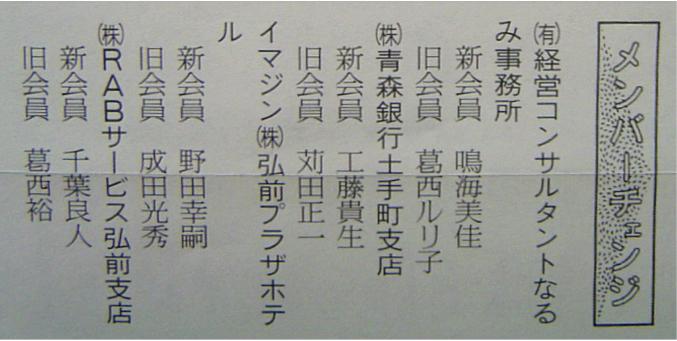 メンバーチェンジ
㈲経営コンサルタントなる
み事務所
新会員 鳴海美佳
旧会員 葛西ルリ子
㈱青森銀行土手町支店
新会員 工藤貴生
旧会員 苅田正一
イマジン㈱弘前プラザホテ
ル
新会員 野田幸嗣
旧会員 成田光秀
㈱RABサービス弘前支店
新会員 千葉良人
旧会員 葛西裕